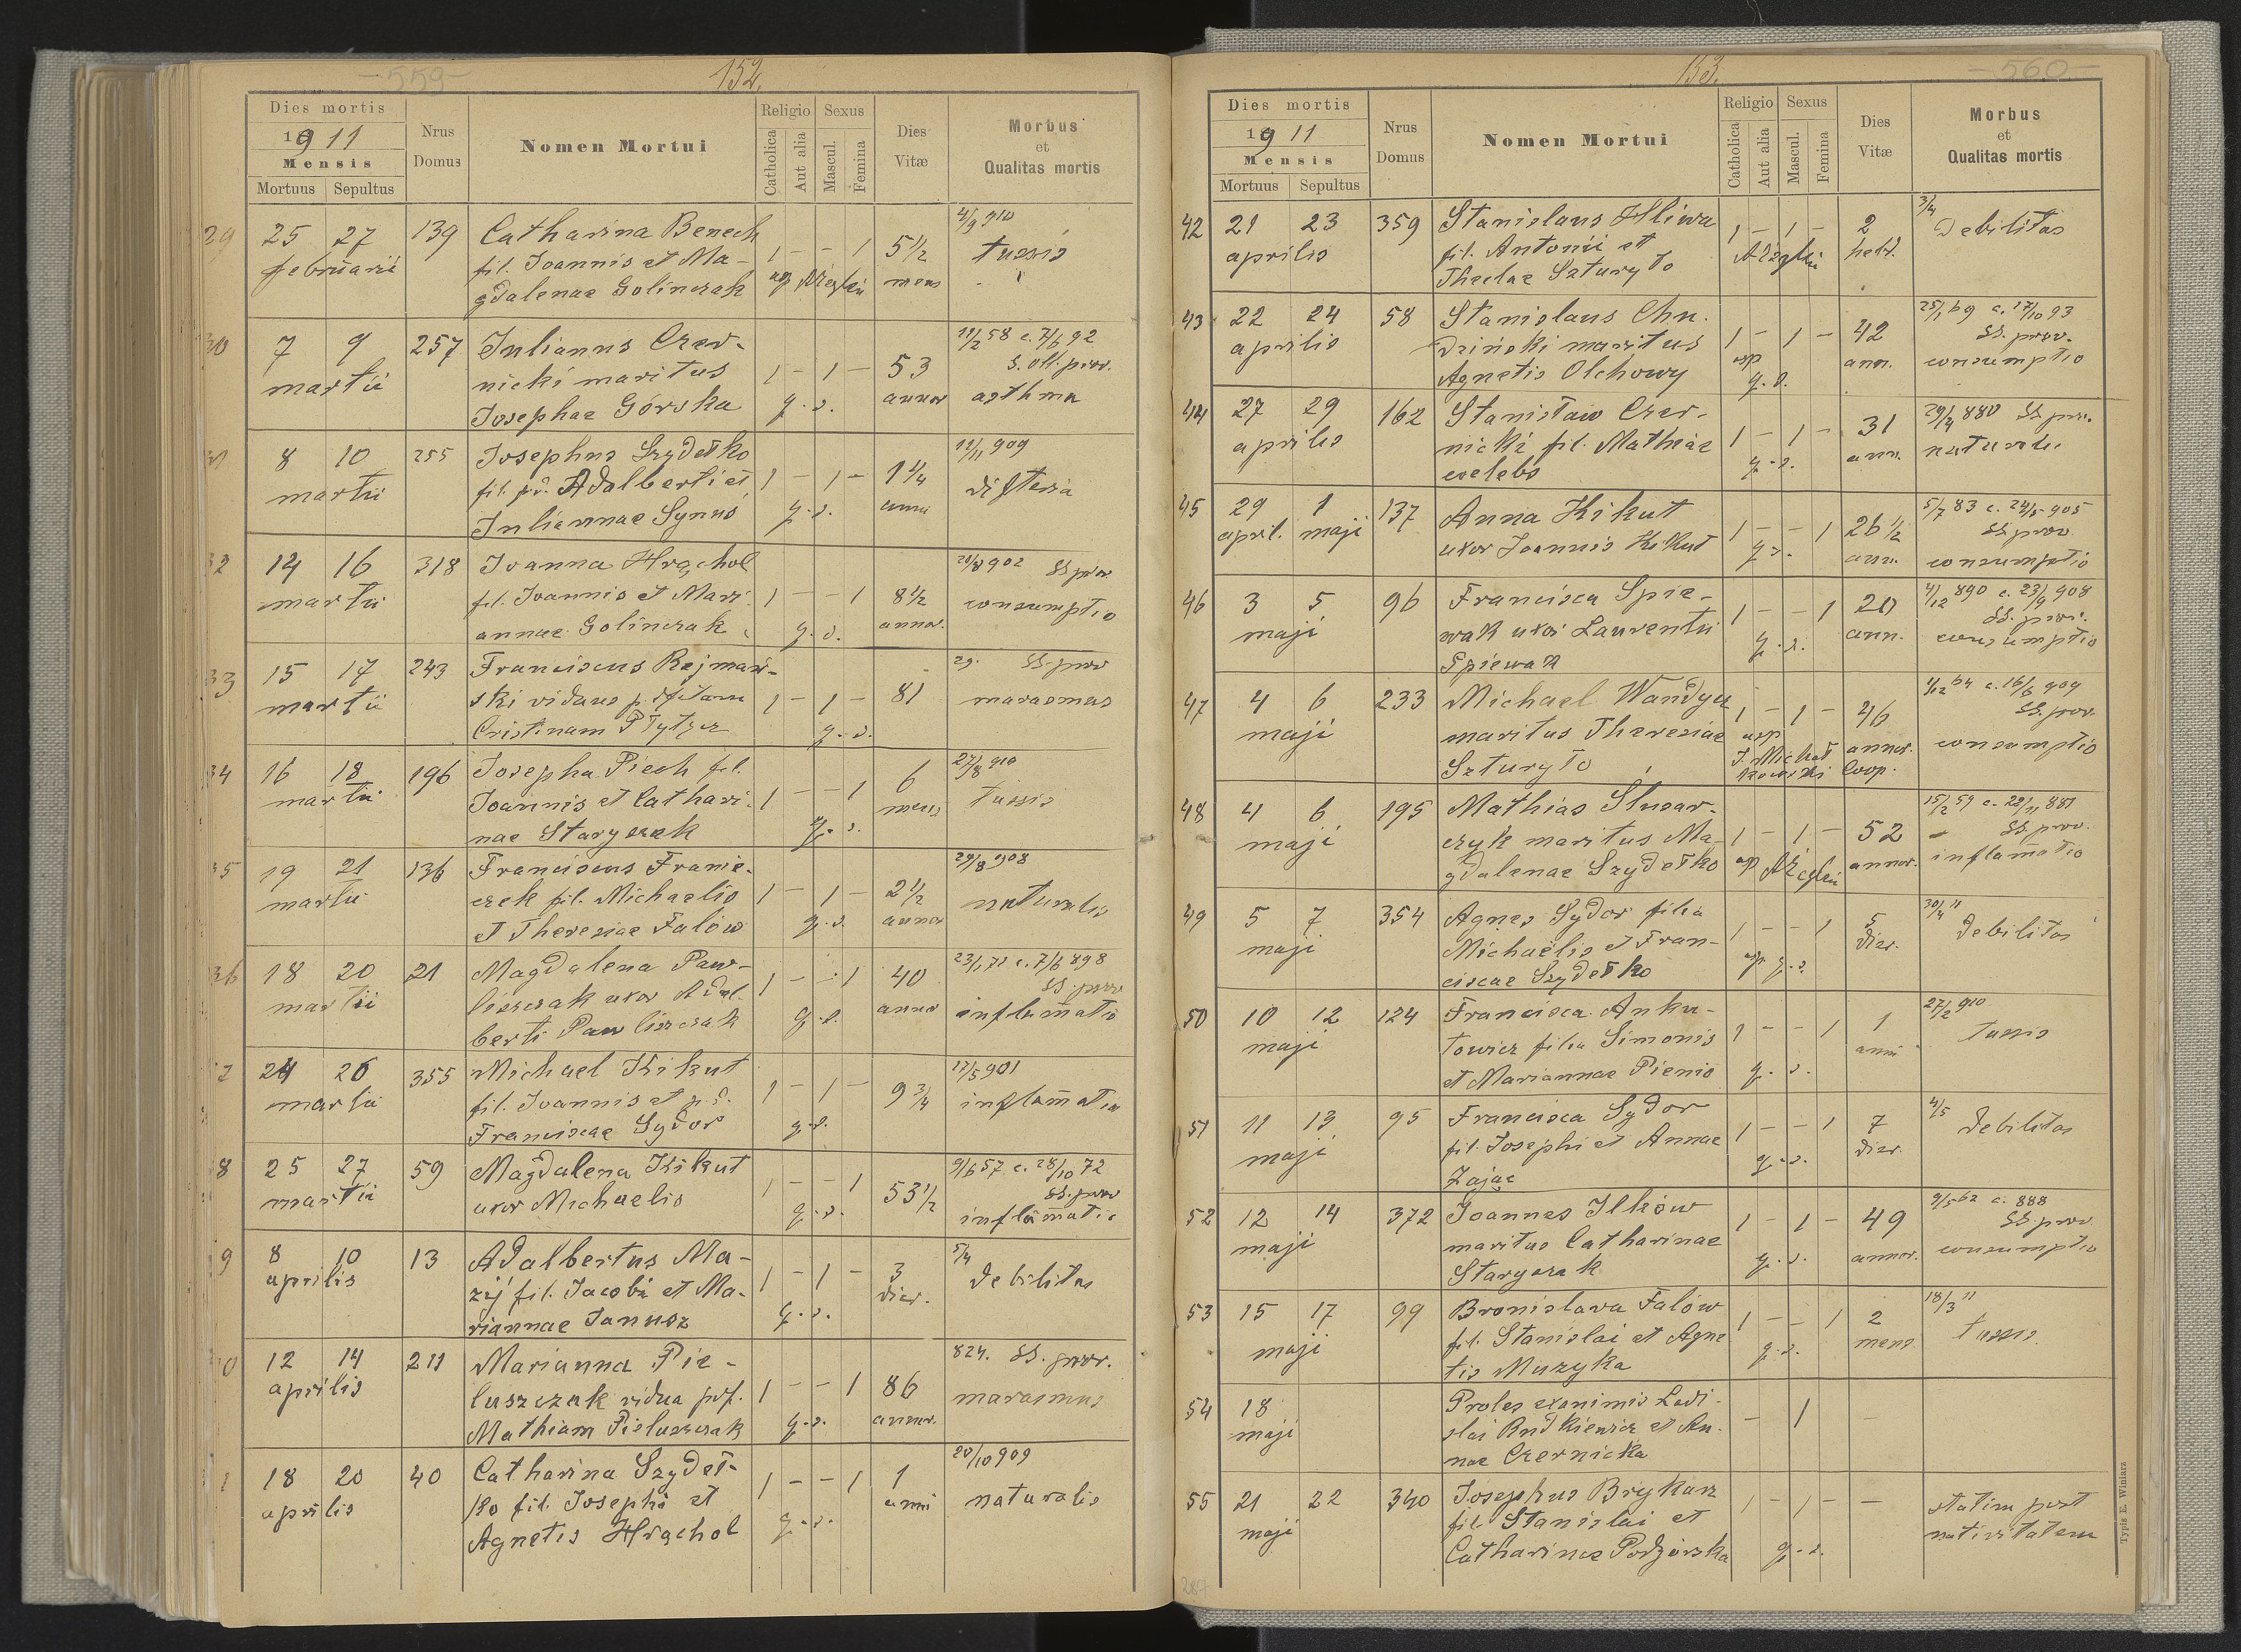 -559-
152.
Dies mortis
1911
Mensis
Mortuus Sepultus
Nrus
Domus
Nomen Mortui
Religio
Catholica
Aut alia
Sexus
Mascul.
Femina
Dies
Vitæ
Morbus
et
Qualitas mortis
29 25 27 139 Catharina Benech 4/9 910
februarii fil. Joannis et Ma- 1 - - 1 5 1/2 tussis
gdalenae Golinczak mens
30 7 9 257 Julianus Czer- 11/2 58 c. 7/6 92
martii nicki maritus 1 - 1 - 53 S. ol. prov.
Josephae Górska q. s. annor asthma
8 10 255 Josephus Szydełko 11/11 909
martii fil. pd. Adalberti et 1 - 1 - 1 1/4 difteria
Juliannae Synuś q. s. anni
32 14 16 318 Joanna Hrąchol 20/8 902 SS prov
martii fil. Joannis et Mari- 1 - - 1 8 1/2 consumptio
annae Golinczak q. s. annor.
33 15 17 243 Franciscus Rejmań- 29. SS. prov
martii ski viduus p. 1 - 1 - 81 marasmus
Cristinam q. s.
34 16 18 196 Josepha Piech fil. 27/8 910
martii Joannis et Cathari- 1 - - 1 6 tussis
nae Staryczak q. s. mens
35 19 21 136 Franciscus Franie- 29/8 908
martii czek fil. Michaelis 1 - 1 - 2 1/2 naturalis
et Theresiae Falów q. s. annor
36 18 20 21 Magdalena Paw- 23/1 71 c. 7/6 898
martii liszczak uxor Adal- 1 - - 1 40 SS. prov
berti Pawliszczak q. s. annor inflamatio
7 24 26 355 Michael Kikut 17/5 901
martii fil. Joannis et pd. 1 - 1 - 9 3/4 inflamatio
Franciscae Sydor q. s.
8 25 27 59 Magdalena Kikut 9/6 57 c. 28/10 72
martii uxor Michaelis 1 - - 1 53 1/2 SS. prov
q. s. inflamatio
9 8 10 13 Adalbertus Ma- 5/4
aprilis zij fil. Jacobi et Ma- 1 - 1 - 3 debilitas
riannae Janusz q. s. dier.
0 12 14 211 Marianna Pie- 824. SS. prov.
aprilis luszczak vidua post. 1 - - 1 86 marasmus
Mathiam Pieluszczak q. s. annor.
1 18 20 40 Catharina Szydeł- 20/10 909
aprilis ko fil. Josephi et 1 - - 1 1 naturalis
Agnetis Hrąchol q. s. anni
153.
-560-
Dies mortis
1911
Mensis
Mortuus Sepultus
Nrus
Domus
Nomen Mortui
Religio
Catholica
Aut alia
Sexus
Mascul.
Femina
Dies
Vitæ
Morbus
et
Qualitas mortis
42 21 23 359 Stanislaus Hliwa 3/4
aprilis fil. Antonii et 1 - 1 - 2 Debilitas
Theclae Szturyło hebd.
43 22 24 58 Stanislaus Chu- 25/1 69 c. 17/10 93
aprilis dziński maritus 1 - 1 - 42 SS. prov.
Agnetis Olchowy asp q. s. ann. consumptio
44 27 29 162 Stanisław Czer- 29/4 880 SS. prov.
aprilis nicki fil. Mathiae 1 - 1 - 31 naturalis
coelebs q. s. ann.
45 29 1 137 Anna Kikut 5/7 83 c. 24/5 905
april. maji uxor Joannis Kikut 1 - - 1 26 1/2 SS prov
q. s. ann. consumptio
46 3 5 96 Francisca Spie- 4/12 890 c. 23/9 908
maji wak uxor Laurentii 1 - - 1 20 SS. prov.
Spiewak q. s. ann. consumptio
47 4 6 233 Michael Wandycz 1/12 64 c. 16/6 909
maji maritus Theresiae 1 - 1 - 46 SS. prov.
Szturyło asp annor. consumptio
Coop.
48 4 6 195 Mathias Slusar- 15/2 59 c. 22/11 881
maji czyk maritus Ma- 1 - 1 - 52 SS. prov.
gdalenae Szydełko annor. inflamatio
49 5 7 354 Agnes Sydor filia 30/4 11
maji Michaëlis et Fran- 1 - - 1 5 debilitas
ciscae Szydełko asp q. s. dier.
50 10 12 124 Francisca Anku- 27/2 910
maji towicz filia Simonis 1 - - 1 1 tussis
et Mariannae Pienio q. s. anni
51 11 13 95 Francisca Sydor 4/5
maji fil. Josephi et Annae 1 - - 1 7 debilitas
Zając q. s. dier.
52 12 14 372 Joannes Ilków 9/5 62 c. 888
maji maritus Catharinae 1 - 1 - 49 SS prov
Staryczak q. s. annor. consumptio
53 15 17 99 Bronislava Falów 18/3 11
maji fil. Stanislai et Agne- 1 - - 1 2 tussis
tis Muzyka q. s. mens
54 18 Proles exanimis Ladi-
maji slai Budkiewicz et An- - 1 -
nae Czernicka
55 21 22 340 Josephus Brykarz 1 - 1 - - statim post
maji fil. Stanislai et nativitatem
Catharinae Podgórska q. s.
Typis E. Winiarz
287